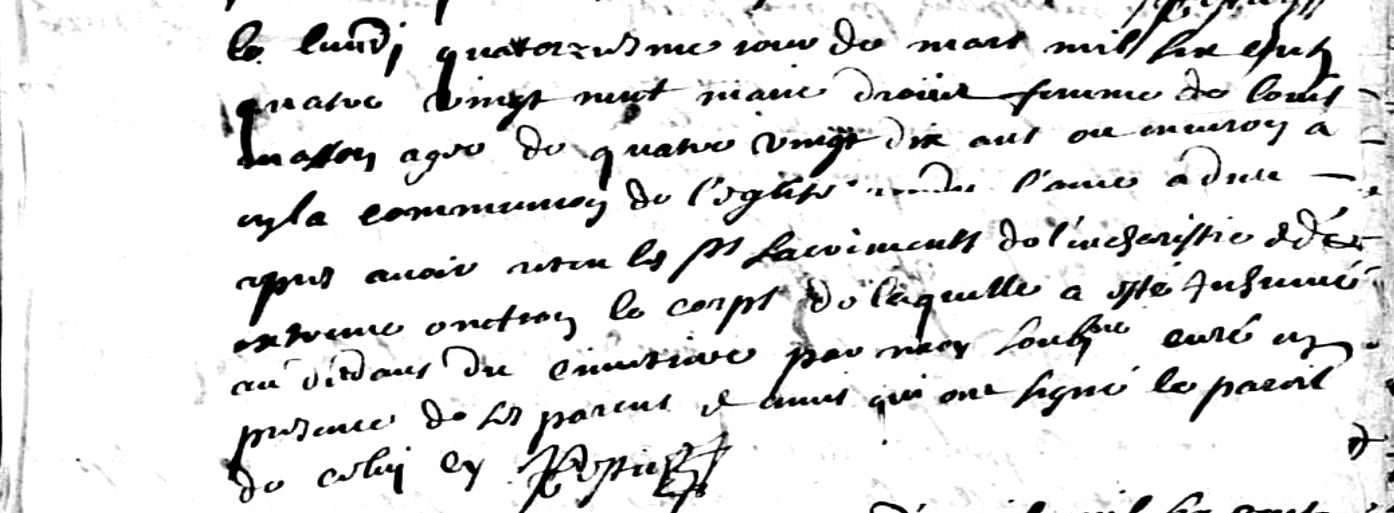 le lundj quatorziesme jour de mars mil six cents
quatre vingt neuf marie femme de louis
masson agee de quatre vingt dix ans ou environ a
en la communion de l'eglise rendu l'ame a dieu
apres avoir receu les sts sacrements de l'eucharistie & de
extreme onction le corps de laquelle a esté Inhumé
au dedans du cimetiere par moy soubsné curé en
presence de ses parens & amis qui ont signé le pareil
de celuy cy